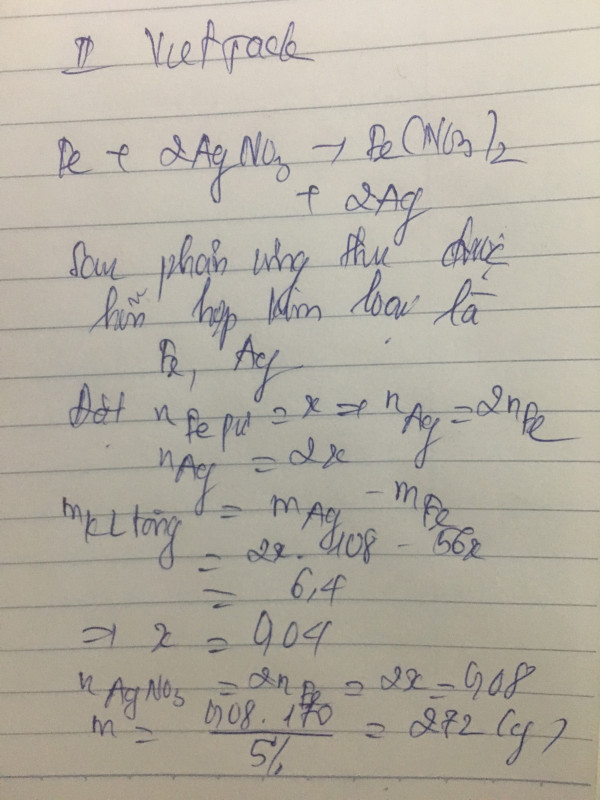 VietJack
Fe + 2AgNO3 → Fe(NO3)2
+ 2Ag
Sau phản ứng thu được
hỗn hợp kim loại là
Fe, Ag
Đặt nFe pư = x ⇒ nAg = 2nFe
nAg = 2x
mKL tăng = mAg - mFe
= 2x. 108 - 56x
= 6,4
⇒ x = 0,04
nAgNO3 = 2nFe = 2x = 0,08
m = 0,08. 170 / 5% = 272 (g)